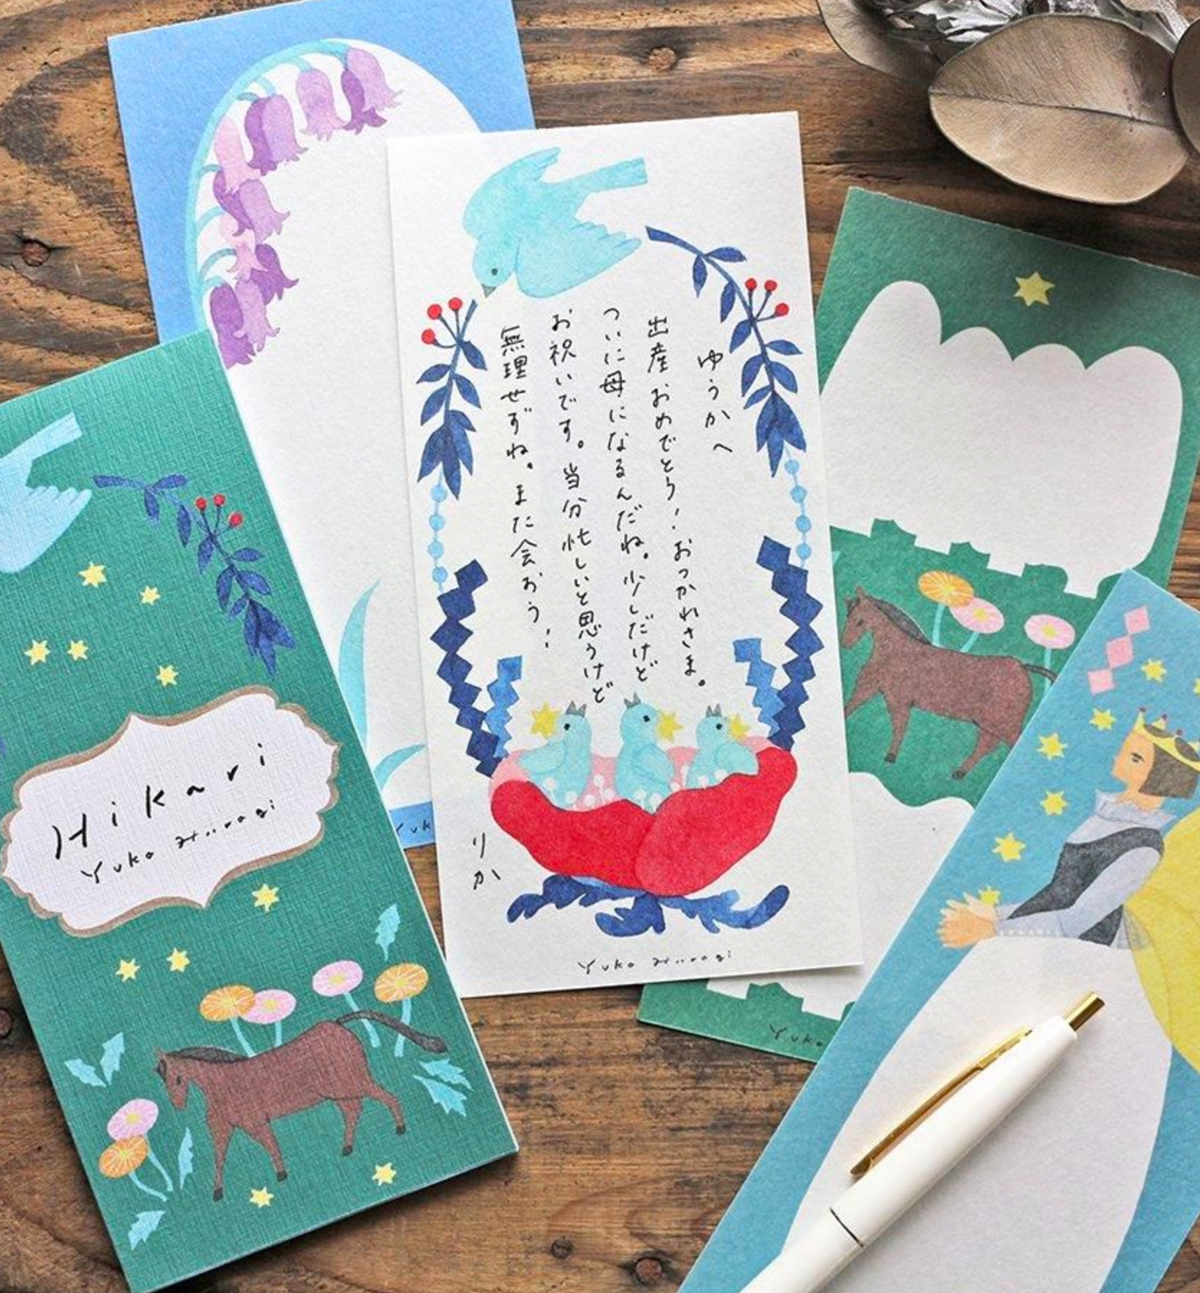 ゆうかへ
出産おめでとう！おつかれさま。
ついに母になるんだね。少しだけど
お祝いです。当分忙しいと思うけど
無理せずね。また会おう！
りか
Yuko Hiiragi
Hikari
Yuko Hiiragi
Yuk
Yuko